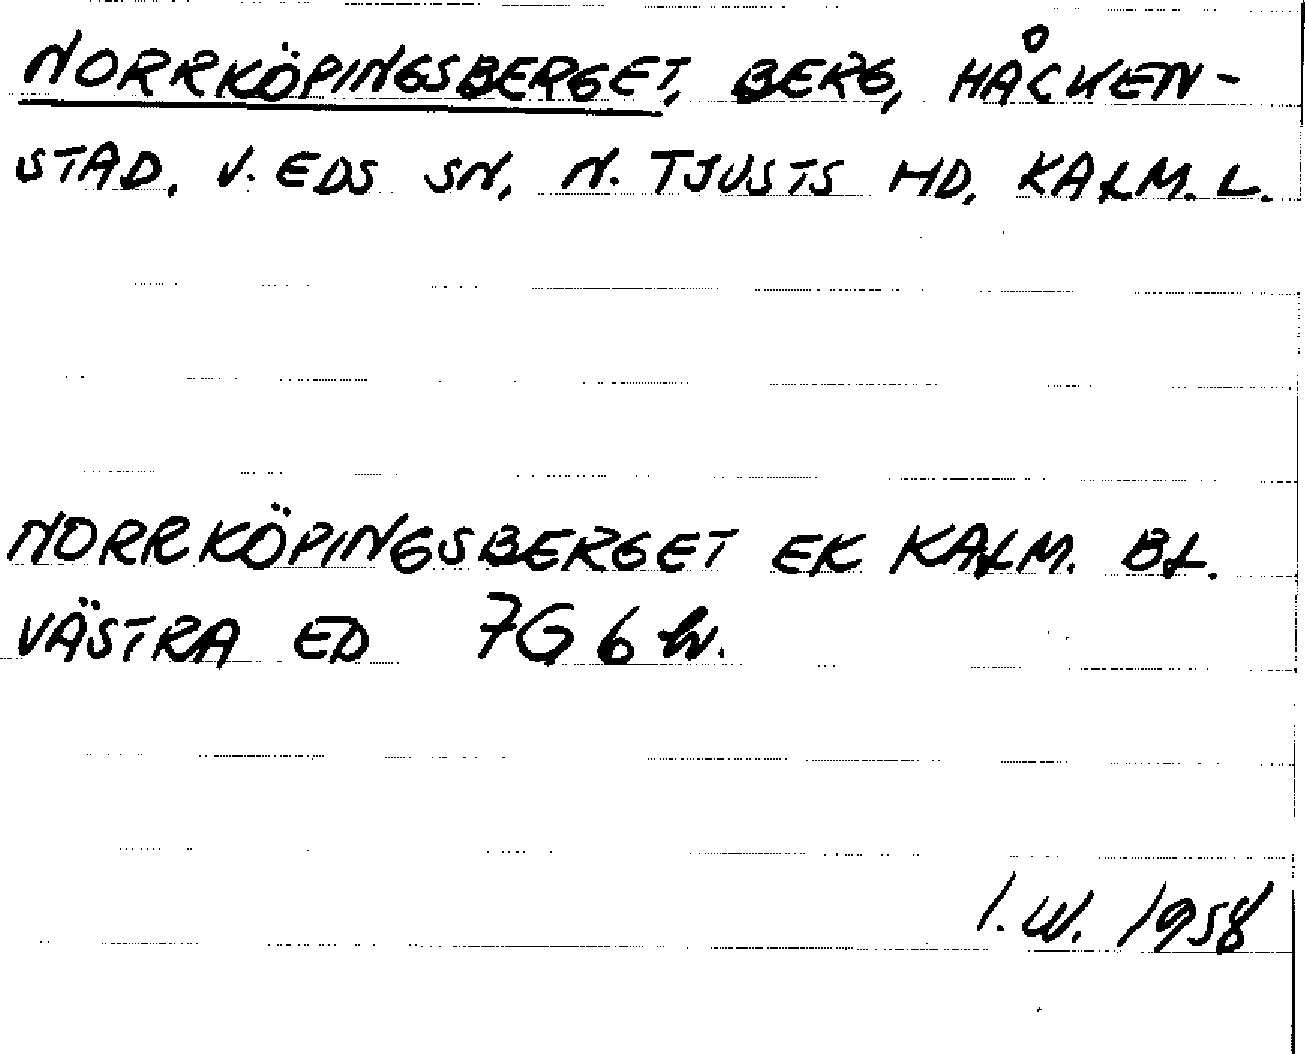 NORRKÖPINGSBERGET, BERG, HÅCKEN-
STAD, V. EDS SN, N. TJUSTS HD, KALM. L.
NORRKÖPINGSBERGET EK KALM. BL.
VÄSTRA ED 7G 6 h.
I.W. 1958